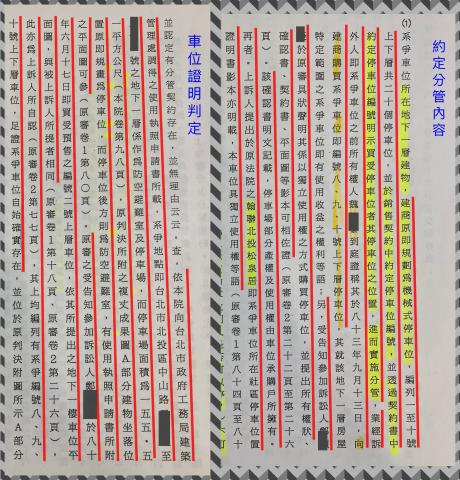 約定分管內容
(1)
系爭車位所在地下一層建物，建商原即規劃為機械式停車位，編列一至十號
上下層共二十個停車位，並於銷售契約中約定停車位編號，並透過契約書中
約定停車位編號明示買受停車位者其停車位之位置，進而實施分管，業經訴
外人即系爭車位之前所有權人魏 到庭證稱其於八十三年九月十三日，向
建商購買系爭車位即編號八、九、十號上下層停車位，其就該地下一層房屋
特定範圍之系爭車位即有使用收益之權利等語；另，受告知參加訴訟人鄭
於原審具狀聲明其係以獨立使用權之方式購買停車位，並提出所有權狀、
確認書、契約書、平面圖等影本可相佐證（原審卷2第二十二頁至第二十六
頁），該確認書明文記載，停車場部分產權及使用權由車位承購戶所擁有。
再者，上訴人提出於原法院之翰聯北投松泉居即系爭車位所在社區停車位置
證明書影本亦明載，本車位具獨立使用權等語（原審卷1第八十四頁至八十
車位證明判定
並認定有分管契約存在，並無理由云云。查，依本院向台北市政府工務局建築
管理處調得之使用執照申請書所載，系爭地點即台北市北投區中山路 至
號之地下一層係作為防空避難室及停車場，而停車場面積為一五五．五
一平方公尺（本院卷第九八頁），原判決所附之複丈成果圖A部分建物坐落位
置原即規畫為停車位，而停車位後方則為防空避難室，有使用執照申請書所附
之平面圖可參（原審卷1第八〇頁）。原審之受告知參加訴訟人鄭 於八十
年六月十七日即買受預售之編號二號上層車位，依其所提出之地下一樓車位平
面圖，與被上訴人所提者相同（原審卷1第十八頁、原審卷2第二十六頁），
此亦為上訴人所自認（原審卷2第七七頁），其上均編列有系爭編號八、九、
十號上下層車位，足證系爭車位自始確實存在，並位於原判決附圖所示A部分